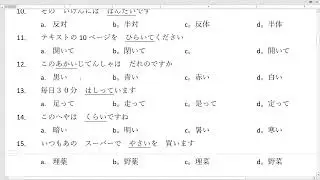 10. その いけんには はんたいです
a. 反対 b. 半対 c. 反体 d. 半体
11. テキストの 10 ページを ひらいてください
a. 開いて b. 閉いて c. d. 開いて
12. このあかいじてんしゃは だれのですか
a. 黒い b. 青い c. 赤い d. 白い
13. 毎日３０分 はしっています
a. 足って b. 走って c. 是って d. 定って
14. このへやは くらいですね
a. 暗い b. 明い c. 暑い d. 寒い
15. いつもあの スーパーで やさいを 買います
a. 理薬 b. 野薬 c. 理菜 d. 野菜